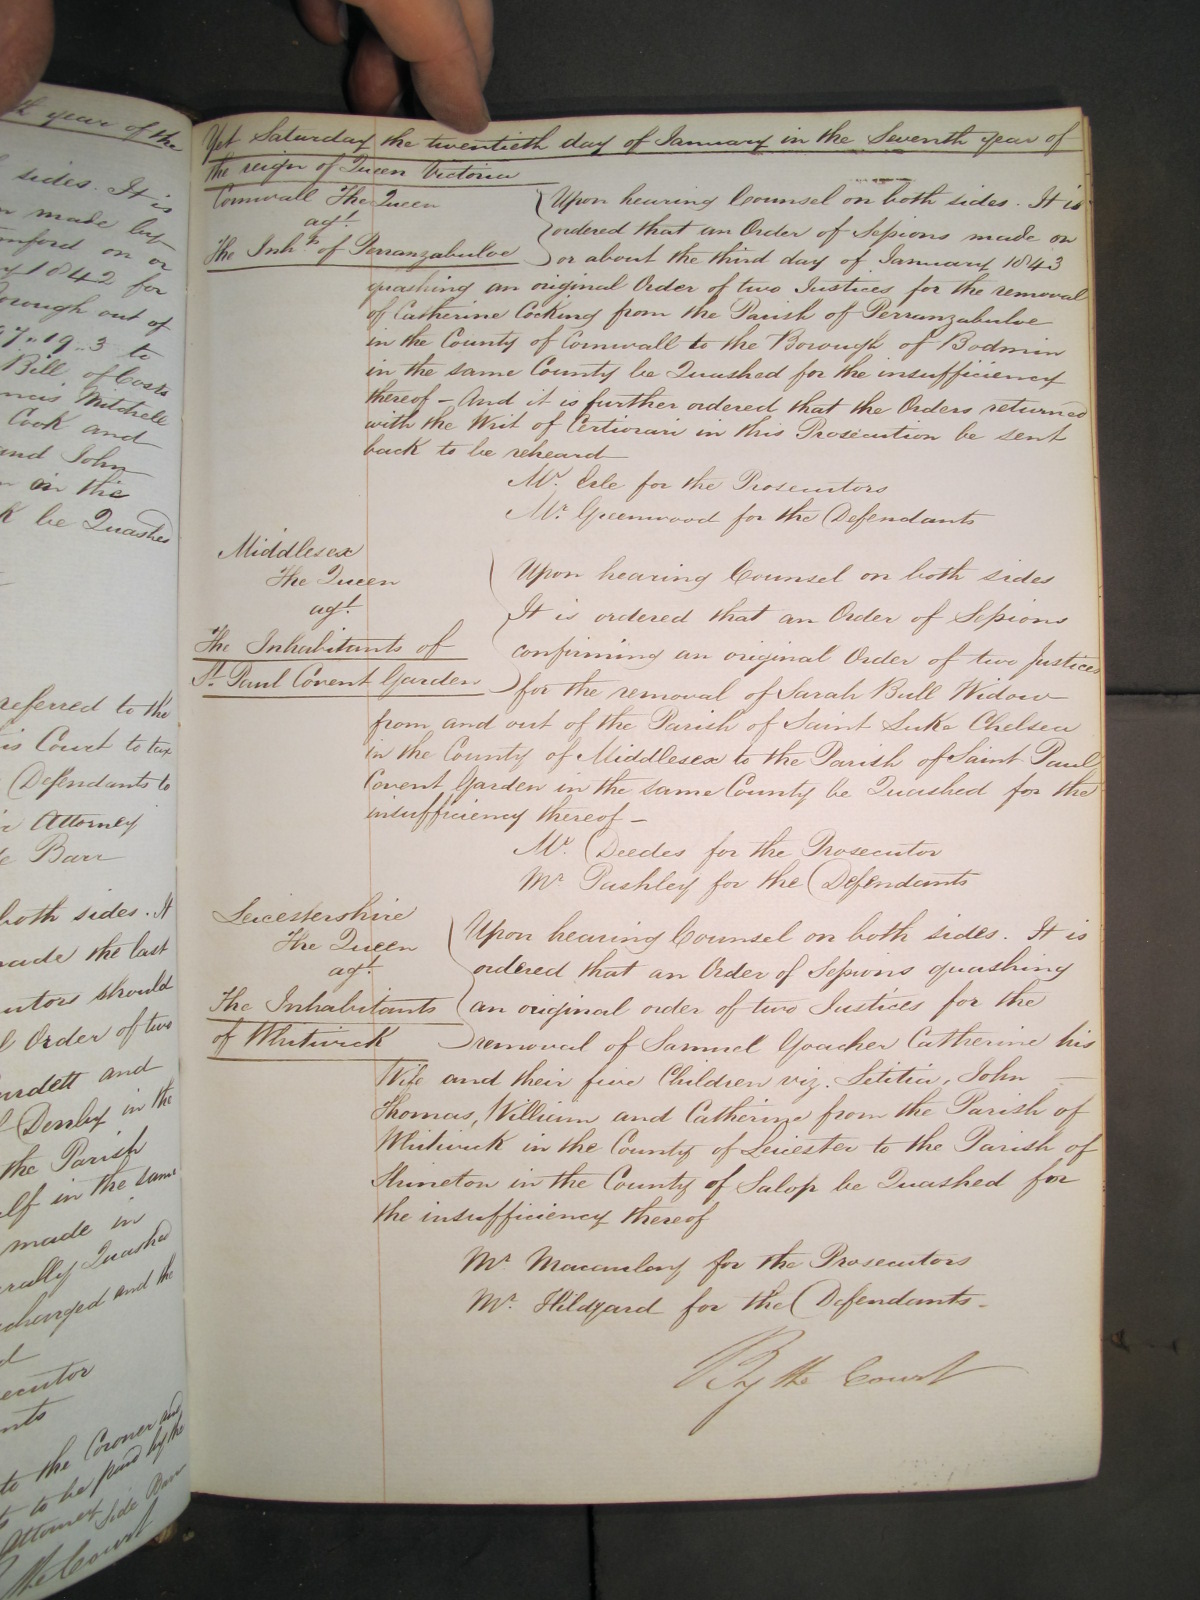 th year of the
sides. It is
n made by
mford on or
y 1842 for
orough out of
97..19..3 to
Bill of Costs
ncis Mitchell
Cook and
and John
in the
k be Quashed
referred to the
is Court to tax
Defendants to
Attorney
Barr
both sides. It
made the last
cutors should
l Order of two
urdett and
Denby in the
the Parish
lf in the same
made in
rally Quashed
charged and the
d
ecutor
nts
to the Coroner and
to be paid by the
Attorney Side Barr
the Court
Yet Saturday the twentieth day of January in the Seventh year of
the reign of Queen Victoria
Cornwall The Queen
agt.
The Inhts of Perranzabuloe
Upon hearing Counsel on both sides. It is
ordered that an Order of Sessions made on
or about the third day of January 1843
quashing an original Order of two Justices for the removal
of Catherine Cocking from the Parish of Perranzabuloe
in the County of Cornwall to the Borough of Bodmin
in the same County be Quashed for the insufficiency
thereof – And it is further ordered that the Orders returned
with the Writ of Certiorari in this Prosecution be sent
back to be reheard
Mr. Erle for the Prosecutors
Mr. Greenwood for the Defendants
Middlesex
The Queen
agt.
The Inhabitants of
St. Paul Covent Garden
Upon hearing Counsel on both sides
It is ordered that an Order of Sessions
confirming an original Order of two Justices
for the removal of Sarah Bull Widow
from and out of the Parish of Saint Luke Chelsea
in the County of Middlesex to the Parish of Saint Paul
Covent Garden in the same County be Quashed for the
insufficiency thereof –
Mr. Deedes for the Prosecutor
Mr Pashley for the Defendants
Leicestershire
The Queen
agt.
The Inhabitants
of Whitwick
Upon hearing Counsel on both sides. It is
ordered that an Order of Sessions quashing
an original order of two Justices for the
removal of Samuel Goacher Catherine his
Wife and their five Children viz. Letitia, John –
Thomas, William and Catherine from the Parish of
Whitwick in the County of Leicester to the Parish of
Shineton in the County of Salop be Quashed for
the insufficiency thereof
Mr Macaulay for the Prosecutors
Mr. Hildyard for the Defendants.
By the Court